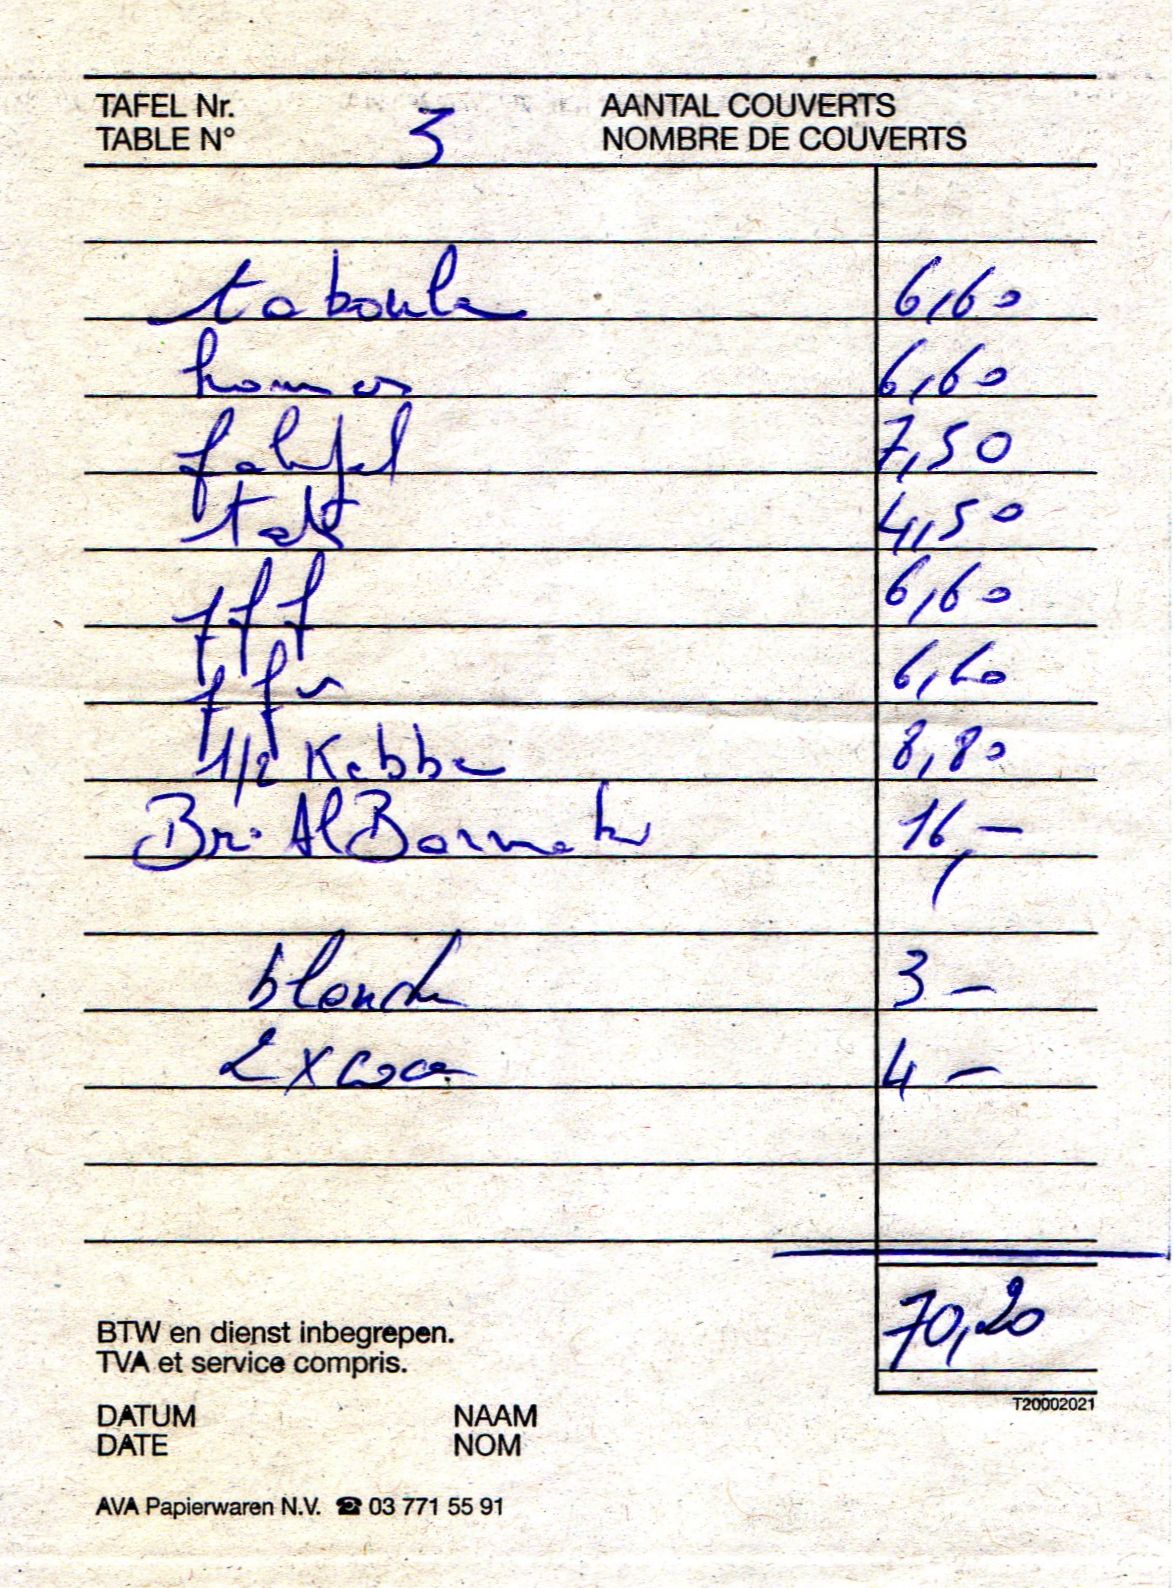 TAFEL Nr. 3 AANTAL COUVERTS
TABLE N° NOMBRE DE COUVERTS
taboule 6,60
homos 6,60
falafel 7,50
4,50
fff 6,60
6,60
1/2 Kebbe 8,80
Al 16,-
blonde 3 -
2 x coca 4 -
70,20
BTW en dienst inbegrepen.
TVA et service compris.
T20002021
DATUM NAAM
DATE NOM
AVA Papierwaren N.V. ☎ 03 771 55 91